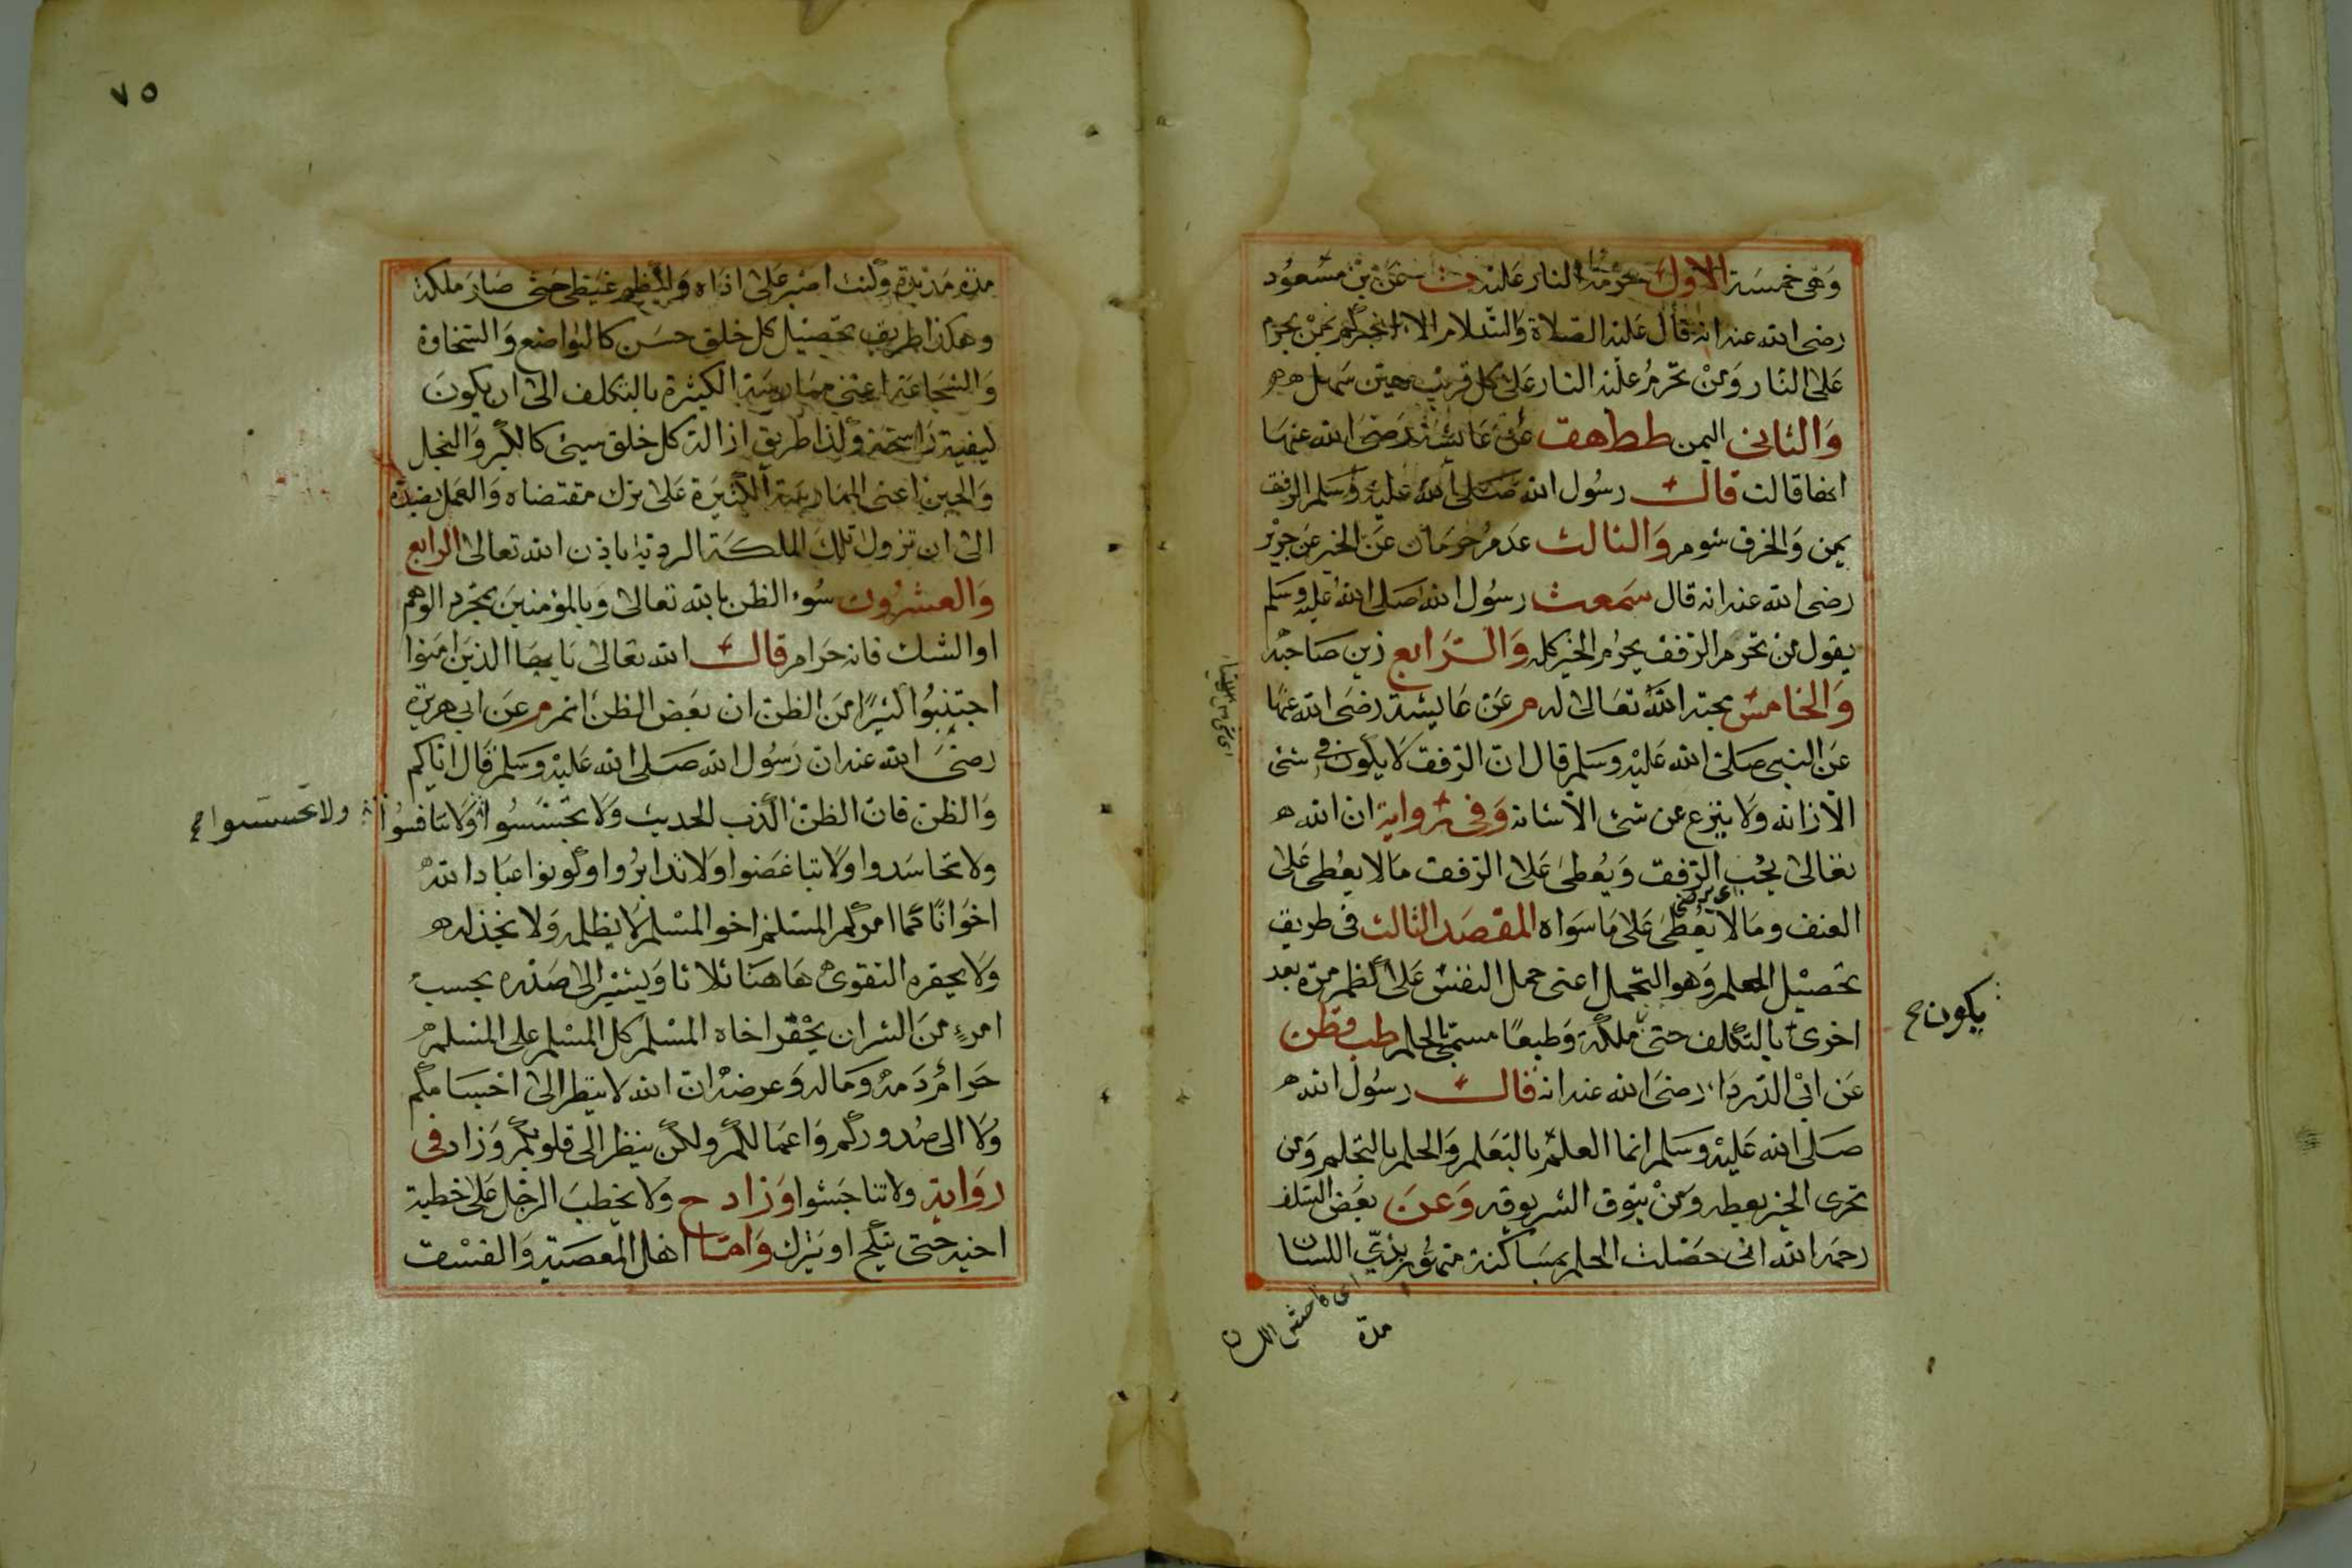 وهى خمسة الاول حرمة النار عليه ت عن بن مسعود
رضى الله عنه انه قال عليه الصلاة والسلام الا اخبركم بمن يحرم
على النار ومن تحرم عليه النار على كل قريب هين سهل
والثانى اليمن ططهق عن عايشة رضى الله عنها
انها قالت قال رسول الله صلى الله عليه وسلم الرفق
يمن والخرق شوم والثالث عدم حرمان عن الخير عن جرير
رضى الله عنه انه قال سمعت رسول الله صلى الله عليه وسلم
يقول من تحرم الرفق يحرم الخير كله والرابع زين صاحبه
والخامس محبة الله تعالى له م عن عايشة رضى الله عنها
عن النبى صلى الله عليه وسلم قال ان الرفق لا يكون فى شئ
الا زانه ولا ينزع من شئ الا شانه وفى رواية ان الله
تعالى يحب الرفق ويعطى على الرفق ما لا يعطى على
العنف وما لا يعطى على ما سواه المقصد الثالث فى طريق
تحصيل الحلم وهو التحمل اعنى حمل النفس على كظم مرة بعد
اخرى بالتكلف حتى ملكة وطبعا مستمى الحلم طب قطن
يكون
عن ابى الدرداء رضى الله عنه انه قال رسول الله
صلى الله عليه وسلم انما العلم بالتعلم والحلم بالتحلم ومن
تحرى الخير يعطه ومن يتوق الشر يوقه وعن بعض السلف
رحمه الله انى حصلت الحلم بمساكنة متهور بذى اللسان
اى فاحش اللسان
مدة
٧٥
مدة مديدة وكنت اصبر على اذاه ولاكظم غيظى حتى صار ملكة
وهكذا طريق تحصيل كل خلق حسن كالتواضع والسخاوة
والشجاعة اعنى ممارسة الكثيرة بالتكلف الى ان يكون
كيفية راسخة ولذا طريق ازالة كل خلق سيئ كالكبر والبخل
والجبن اعنى الممارسة الكثيرة على ترك مقتضاه والعمل بضده
الى ان تزول تلك الملكة الردية باذن الله تعالى الرابع
والعشرون سوء الظن بالله تعالى وبالمؤمنين بمجرد الوهم
او الشك فانه حرام قال الله تعالى يا ايها الذين امنوا
اجتنبوا كثيرا من الظن ان بعض الظن اثم م عن ابى هريرة
رضى الله عنه ان رسول الله صلى الله عليه وسلم قال اياكم
والظن فان الظن اكذب الحديث ولا تجسسوا ولا تنافسوا
ولا تحسسوا
ولا تحاسدوا ولا تباغضوا ولا تدابروا وكونوا عباد الله
اخوانا كما امركم المسلم اخو المسلم لا يظلمه ولا يخذله
ولا يحقره التقوى هاهنا ثلاثا ويشير الى صدره بحسب
امرء من الشر ان يحقر اخاه المسلم كل المسلم على المسلم
حرام دمه وماله وعرضه ان الله لا ينظر الى اجسامكم
ولا الى صدوركم واعمالكم ولكن ينظر الى قلوبكم وزاد فى
رواية ولا تناجشوا وزاد ح ولا يخطب الرجل على خطبة
اخيه حتى ينكح او يترك واما اهل المعصية والفسق